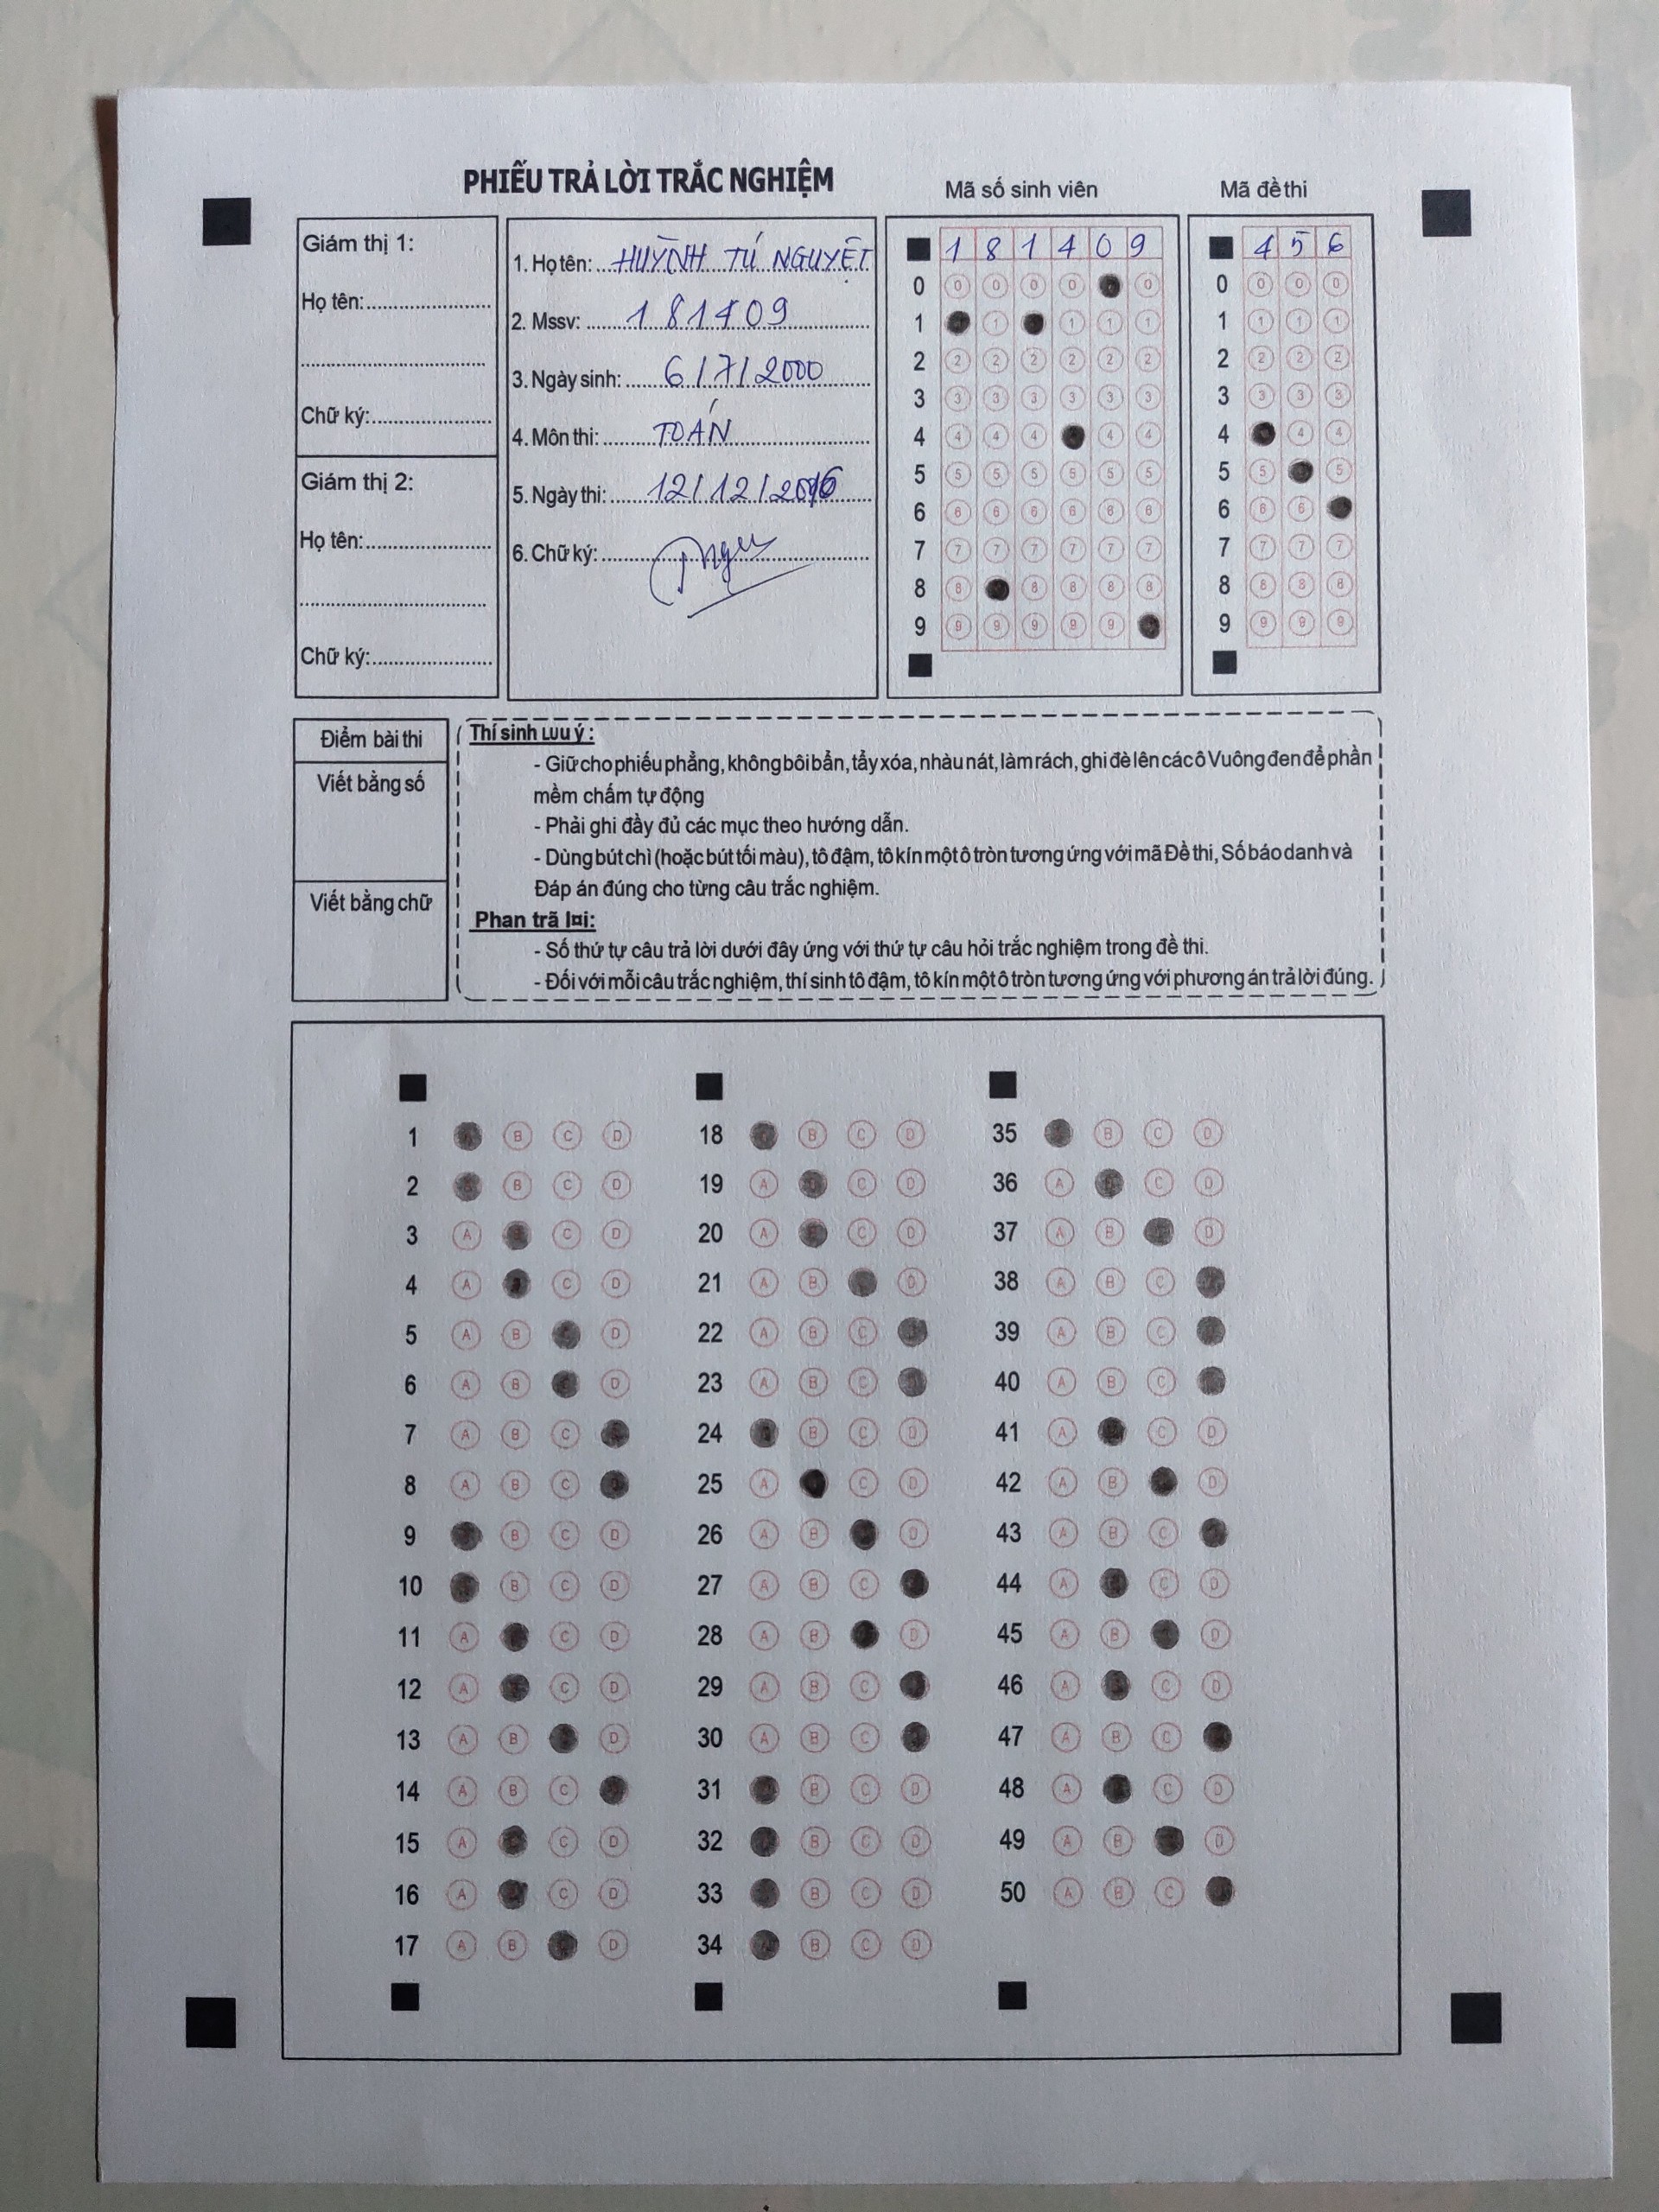 PHIẾU TRẢ LỜI TRẮC NGHIỆM
Mã số sinh viên
Mã đề thi
Giám thị 1:
Họ tên:
Chữ ký:
Giám thị 2:
Họ tên:
Chữ ký:
1. Họ tên: HUỲNH TÚ NGUYỆT
2. Mssv: 181409
3. Ngày sinh: 6/7/2000
4. Môn thi: TOÁN
5. Ngày thi: 12/12/2016
6. Chữ ký:
1 8 1 4 0 9
0 0 0 0 0 0
1 1 1 1 1
2 2 2 2 2 2 2
3 3 3 3 3 3 3
4 4 4 4 4 4
5 5 5 5 5 5 5
6 6 6 6 6 6 6
7 7 7 7 7 7 7
8 8 8 8 8 8
9 9 9 9 9 9
4 5 6
0 0 0 0
1 1 1 1
2 2 2 2
3 3 3 3
4 4 4
5 5 5
6 6 6
7 7 7 7
8 8 8 8
9 9 9 9
Điểm bài thi
Viết bằng số
Viết bằng chữ
Thí sinh Lưu ý :
- Giữ cho phiếu phẳng, không bôi bẩn, tẩy xóa, nhàu nát, làm rách, ghi đè lên các ô Vuông đen để phần
mềm chấm tự động
- Phải ghi đầy đủ các mục theo hướng dẫn.
- Dùng bút chì (hoặc bút tối màu), tô đậm, tô kín một ô tròn tương ứng với mã Đề thi, Số báo danh và
Đáp án đúng cho từng câu trắc nghiệm.
Phan trã l¤i:
- Số thứ tự câu trả lời dưới đây ứng với thứ tự câu hỏi trắc nghiệm trong đề thi.
- Đối với mỗi câu trắc nghiệm, thí sinh tô đậm, tô kín một ô tròn tương ứng với phương án trả lời đúng.
1 B C D
2 B C D
3 A C D
4 A C D
5 A B D
6 A B D
7 A B C
8 A B C
9 B C D
10 B C D
11 A C D
12 A C D
13 A B D
14 A B C
15 A C D
16 A C D
17 A B D
18 B C D
19 A C D
20 A C D
21 A B D
22 A B C
23 A B C
24 B C D
25 A C D
26 A B D
27 A B C
28 A B D
29 A B C
30 A B C
31 B C D
32 B C D
33 B C D
34 B C D
35 B C D
36 A C D
37 A B D
38 A B C
39 A B C
40 A B C
41 A C D
42 A B D
43 A B C
44 A C D
45 A B D
46 A C D
47 A B C
48 A C D
49 A B D
50 A B C